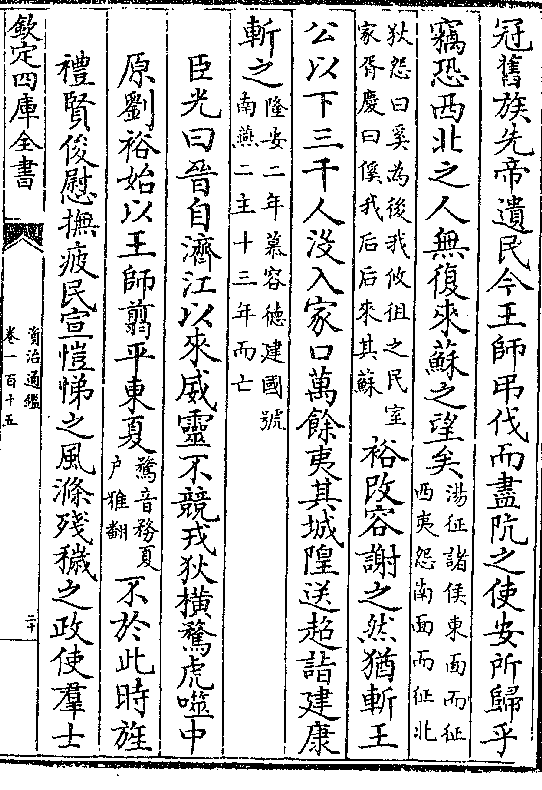 冠舊族先帝遺民今王師弔伐而盡阬之使安所歸乎
竊恐西北之人無復來蘇之望矣
湯征諸侯東面而征
西夷怨南面而征北
狄怨曰奚為後我攸徂之民室
家胥慶曰徯我后后來其蘇
裕改容謝之然猶斬王
公以下三千人沒入家口萬餘夷其城隍送超詣建康
斬之
隆安二年慕容徳建國號
南燕二主十三年而亡
臣光曰晉自濟江以來威靈不競戎狄橫騖虎噬中
原劉裕始以王師翦平東夏
騖音務夏
户雅翻
不於此時旌
禮賢俊慰撫疲民宣愷悌之風滌殘穢之政使羣士
欽定四庫全書
資治通鑑
卷一百十五
二十